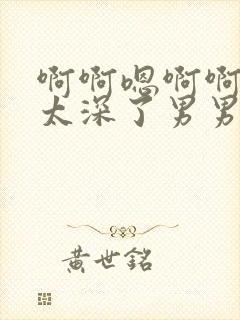 啊啊嗯啊啊
太深了男男
黄世銘